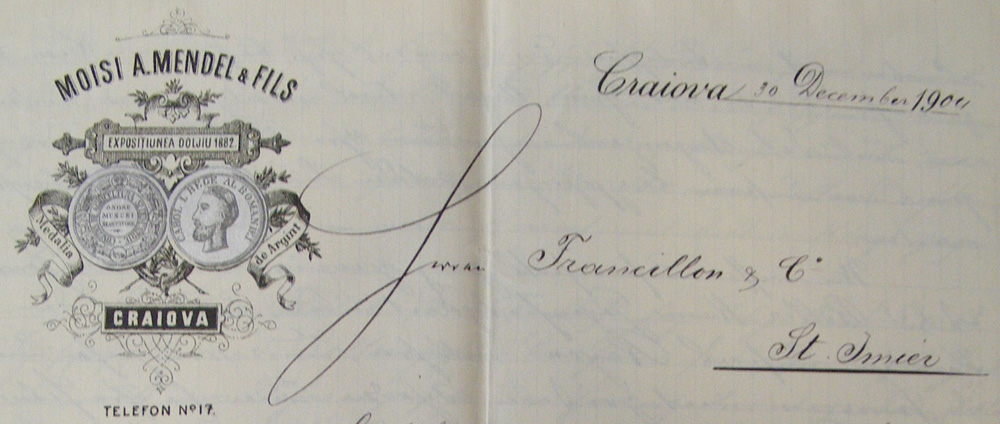 MOISI A. MENDEL & FILS
EXPOSITIUNEA DOLJIU 1882
CAROL I REGE AL ROMANIEI
Medalia de Argint
CRAIOVA
TELEFON Nº 17.
Craiova 30 December 1904
Herren Francillon & Cº
St. Imier